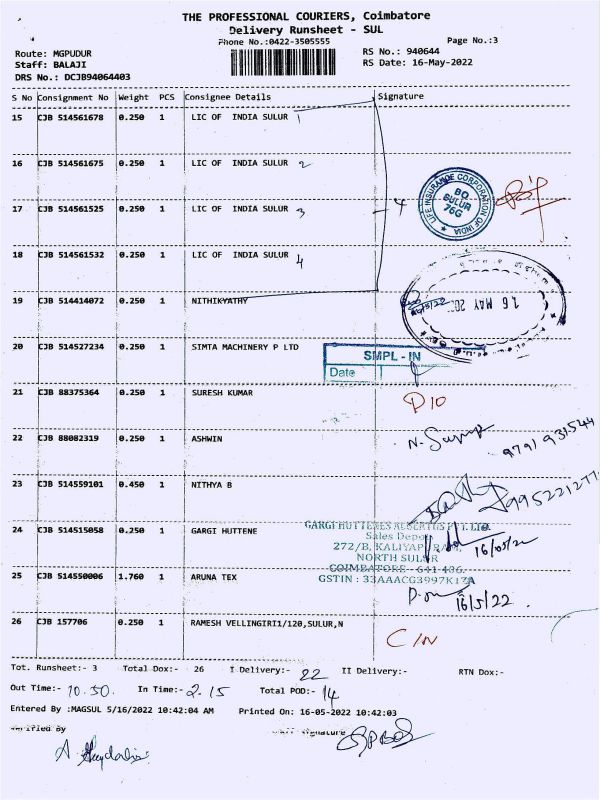 THE PROFESSIONAL COURIERS, Coimbatore
Delivery Runsheet - SUL
Phone No.:0422-3505555
Page No.:3
Route: MGPUDUR
RS No.: 940644
Staff: BALAJI
RS Date: 16-May-2022
DRS No.: DCJB94064403
S No Consignment No Weight PCS Consignee Details Signature
15 CJB 514561678 0.250 1 LIC OF INDIA SULUR 1
16 CJB 514561675 0.250 1 LIC OF INDIA SULUR 2
17 CJB 514561525 0.250 1 LIC OF INDIA SULUR 3
4
LIFE INSURANCE CORPORATION OF INDIA
BO
SULUR
76G
18 CJB 514561532 0.250 1 LIC OF INDIA SULUR 4
19 CJB 514414072 0.250 1 NITHIKYATHY
16 MAY
20 CJB 514527234 0.250 1 SIMTA MACHINERY P LTD
SMPL - IN
Date
21 CJB 88375364 0.250 1 SURESH KUMAR
D10
22 CJB 88082319 0.250 1 ASHWIN
9791931544
23 CJB 514559101 0.450 1 NITHYA B
24 CJB 514515058 0.250 1 GARGI HUTTENE
GARGI HUTTENES ALBERTUS PVT. LTD.
Sales Depot
272/B, KALIYAPURAM,
NORTH SULUR
COIMBATORE - 641 406.
GSTIN : 33AAACG3997K1ZA
16/05/22
25 CJB 514550006 1.760 1 ARUNA TEX
16/5/22
26 CJB 157706 0.250 1 RAMESH VELLINGIRI1/120,SULUR,N
C/N
Tot. Runsheet:- 3 Total Dox:- 26 I Delivery:- 22 II Delivery:- RTN Dox:-
Out Time:- 10.50. In Time:- 2.15 Total POD:- 14
Entered By :MAGSUL 5/16/2022 10:42:04 AM Printed On: 16-05-2022 10:42:03
Verified By
Signature